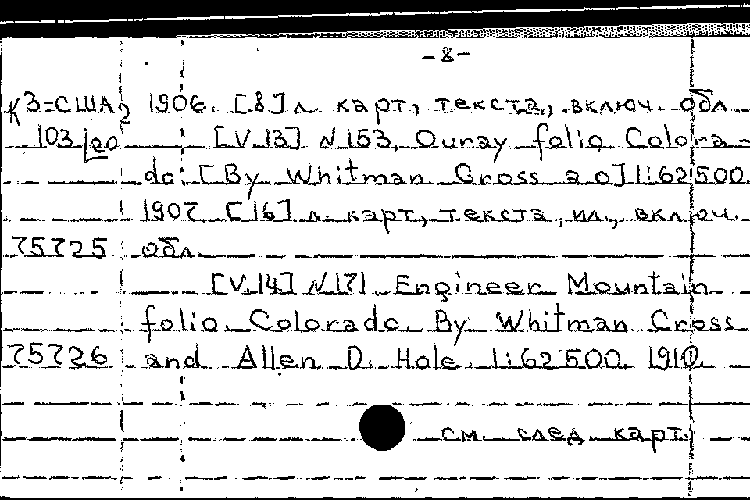 -8-
К3=США2 1906. [8] л. карт, текста, включ. обл.
103/00 [V.13] N 153. Ouray folio Colora-
do. [By Whitman Cross a.o] 1:62500.
1907 [16] л. карт, текста, ил., включ.
75725 обл.
[V.14] N 171 Engineer Mountain
folio Colorado By Whitman Cross
75726 and Allen D. Hole. 1:62500. 1910.
см. след карт.